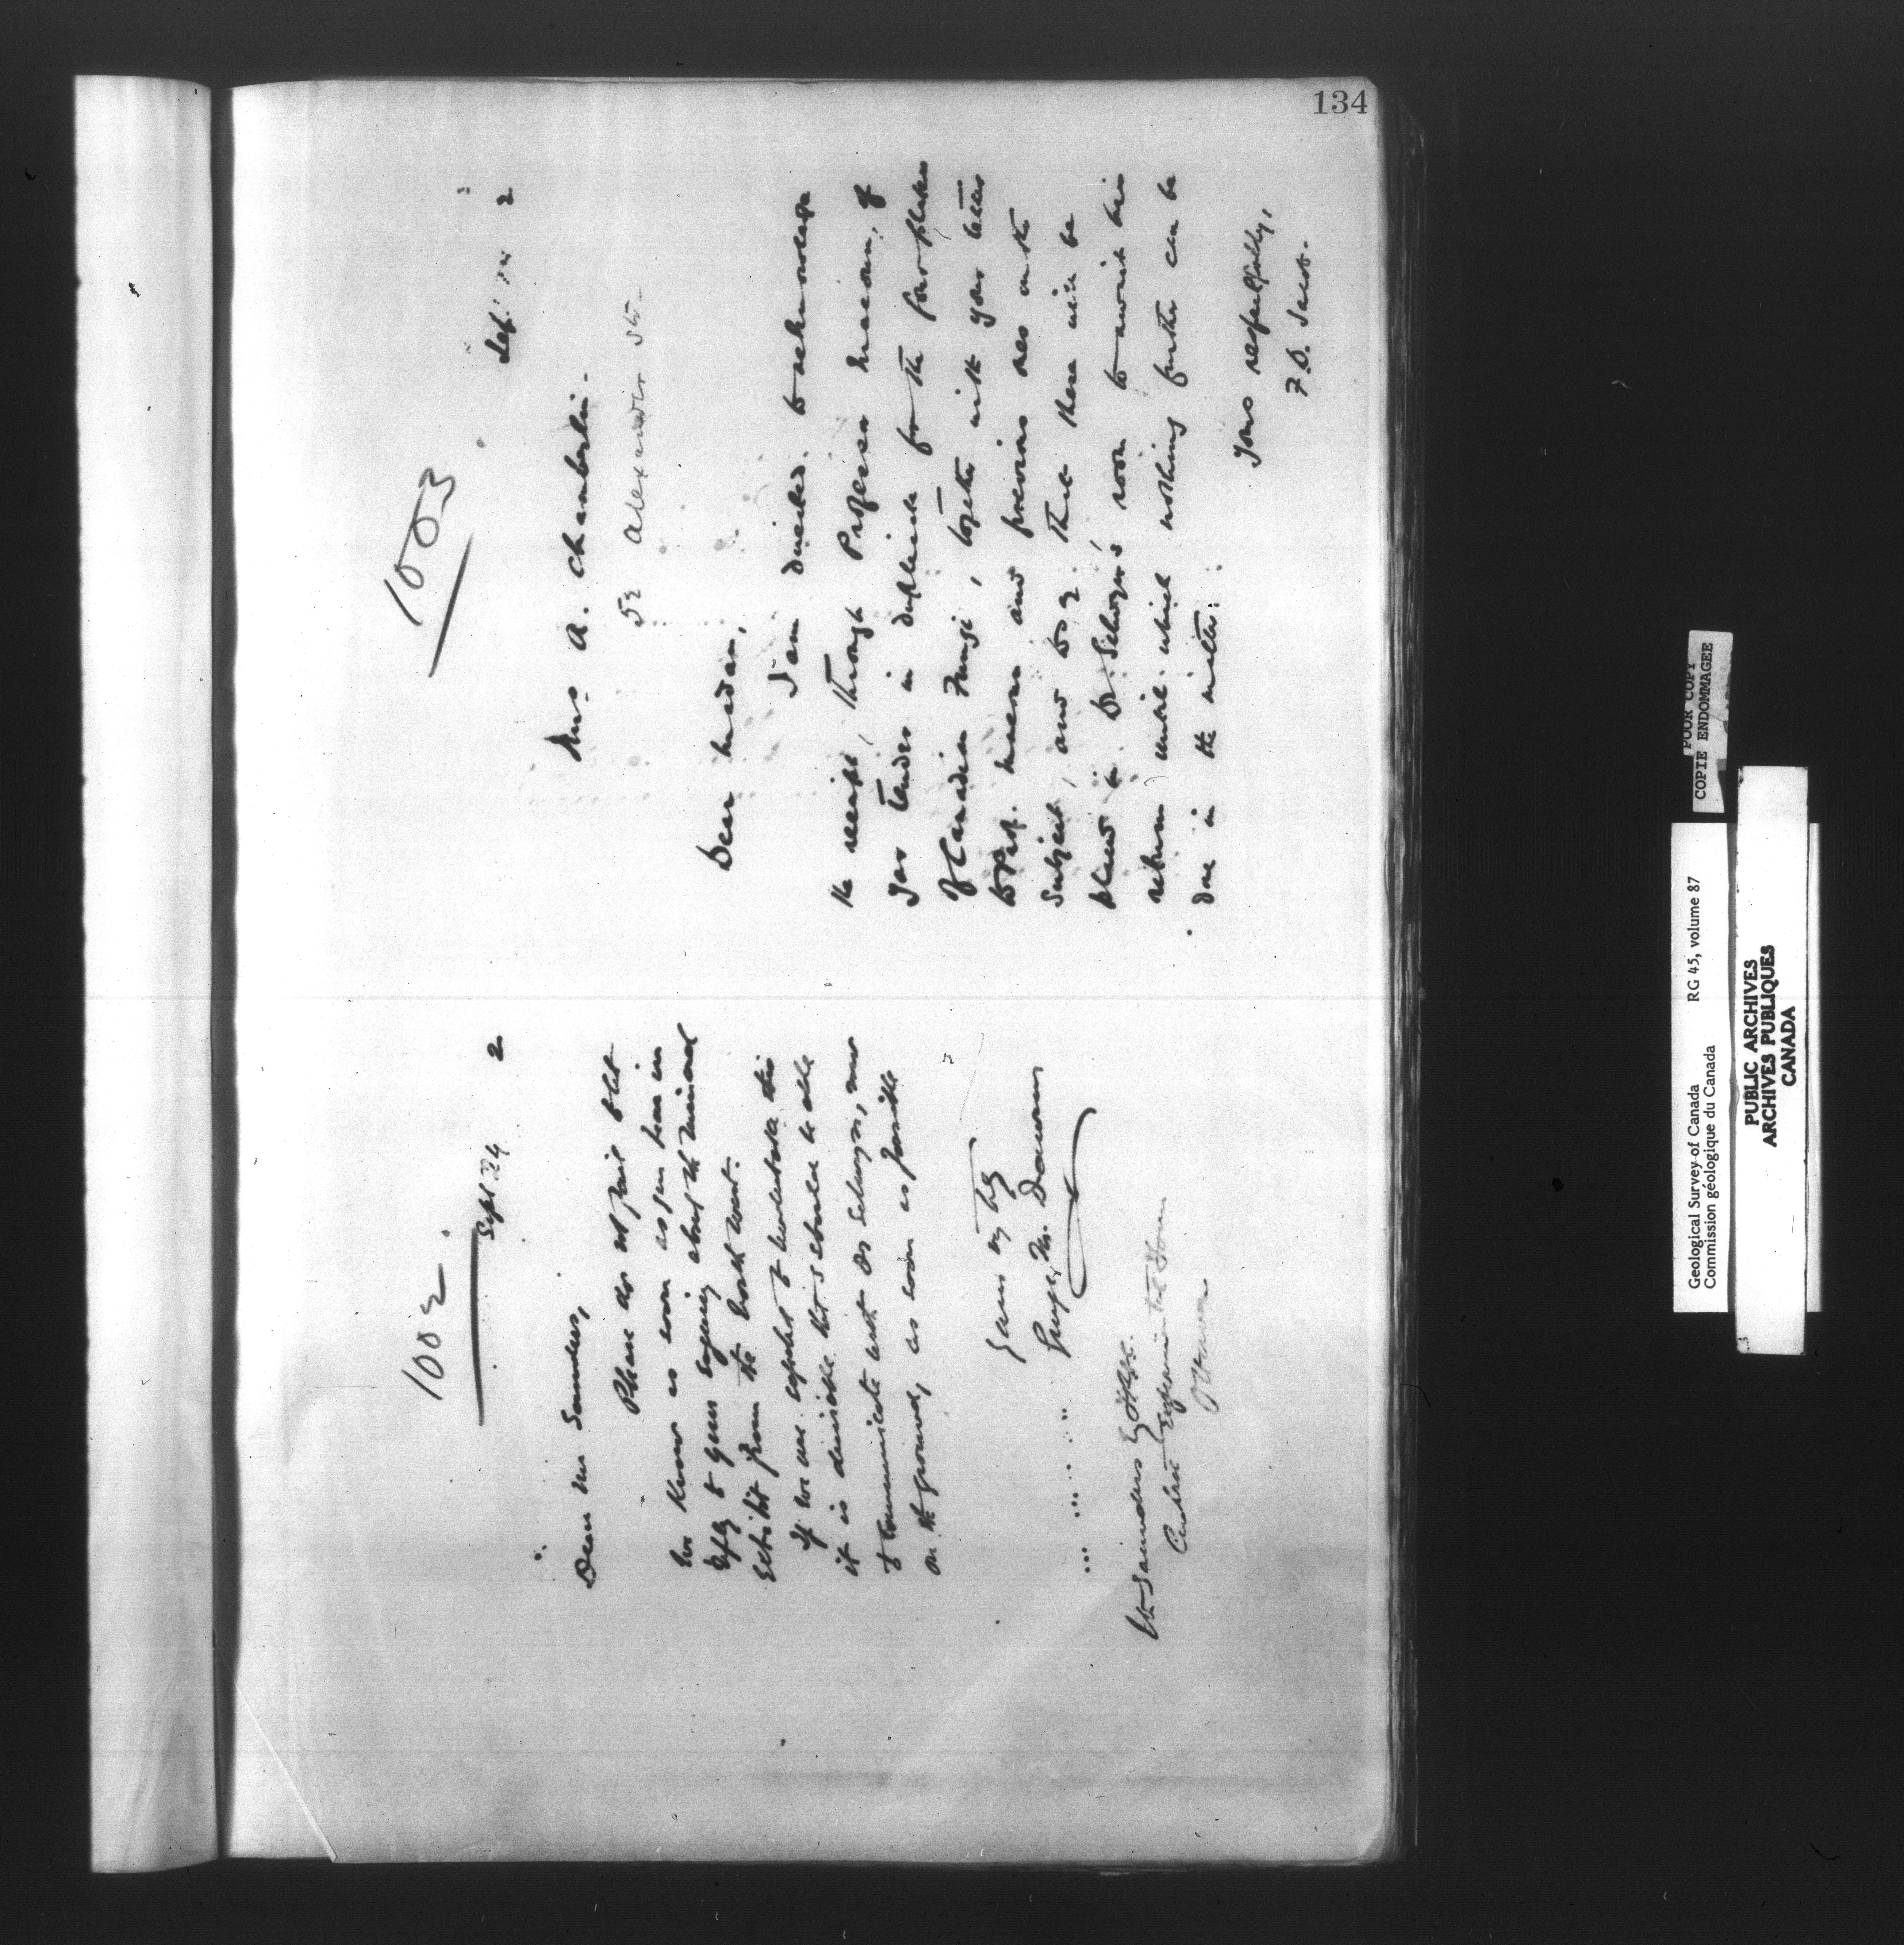 134
1002
Sept 24 2
Dear Mr Saunders,
Please do not fail to let
me know as soon as you hear in
reply to yours enquiring about the mineral
Exhibit from the North West.
If we are expected to undertake this
it is desirable that I should be able
to communicate with Dr Selwyn, now
on the ground, as soon as possible
Yours truly
George M. Dawson
Wm Saunders Esq
Central Experimental Farm
Ottawa
1003
2
Mrs A. Chamberlin.
52 Alexander St
Dear Madam,
I am directed to acknowledge
the receipt, through Professor Macoun, of
your tender in duplicate for the four plates
of Canadian Fungi, together with your letter
to Prof. Macoun and previous ones on the
subject, and to say that these will be
placed in Dr Selwyn's room to await his
return until which nothing further can be
done in the matter.
Yours respectfully,
Geological Survey of Canada RG 45, volume 87
Commission géologique du Canada
POOR COPY
COPIE ENDOMMAGEE
PUBLIC ARCHIVES
ARCHIVES PUBLIQUES
CANADA